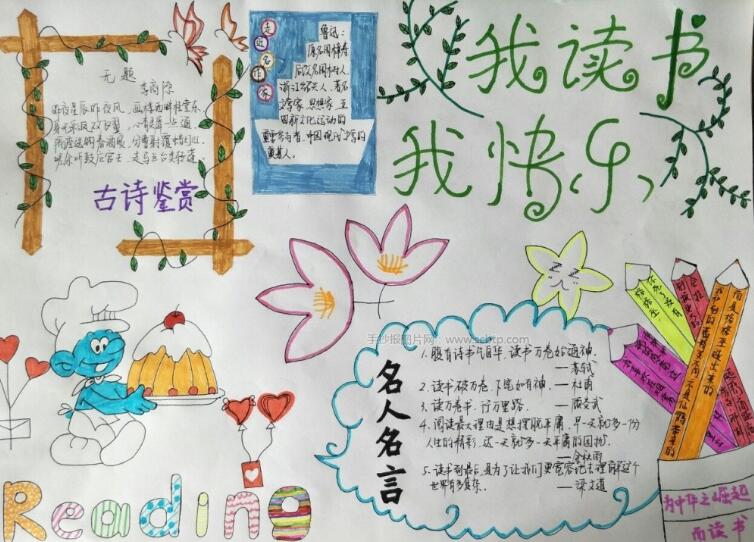 无题
李商隐
昨夜星辰昨夜风，画楼西畔桂堂东
身无彩凤双飞翼，心有灵犀一点通
隔座送钩春酒暖，分曹射覆蜡灯红
嗟余听鼓应官去，走马兰台类转蓬
古诗鉴赏
走近名作家
鲁迅：
原名周樟寿
后改名周树人，
浙江绍兴人，著名
文学家、思想家，五
四新文化运动的
重要参与者，中国现代文学的
奠基人。
我读书
我快乐
手抄报图片网
名人名言
1、腹有诗书气自华，读书万卷始通神。
——苏轼
2、读书破万卷，下笔如有神。——杜甫
3、读万卷书，行万里路。——顾炎武
4、阅读最大理由是想摆脱平庸，早一天就多一份
人生的精彩，迟一天就多一天平庸的困扰。
——余秋雨
5、读书到最后，是为了让我们更宽容地去理解这个
世界有多复杂。——梁文道
Reading
为中华之崛起
而读书